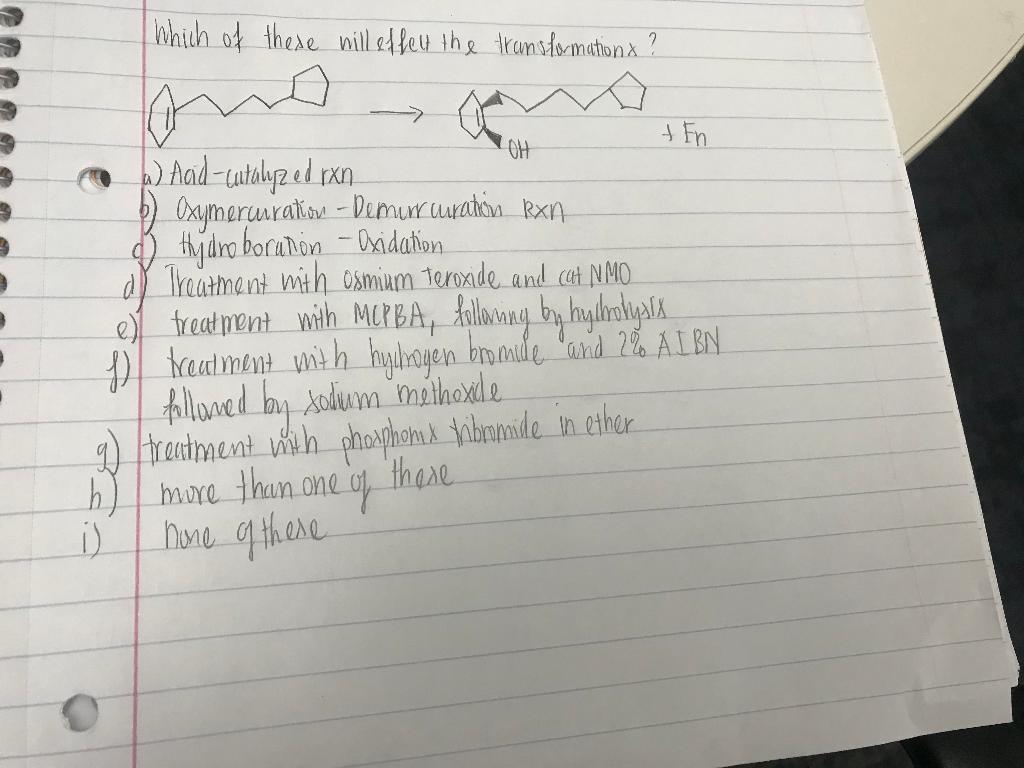 Which of these will effect the transformations?
OH
+ En
a) Acid-catalyzed rxn
b) Oxymercuration - Demurrcuration Rxn
c) Hydroboration - Oxidation
d) Treatment with osmium Teroxide and cat NMO
e) treatment with MCPBA, following by hydrolysis
f) treatment with hydrogen bromide and 2% AIBN
followed by sodium methoxide
g) treatment with phosphorus tribromide in ether
h) more than one of these
i) none of these